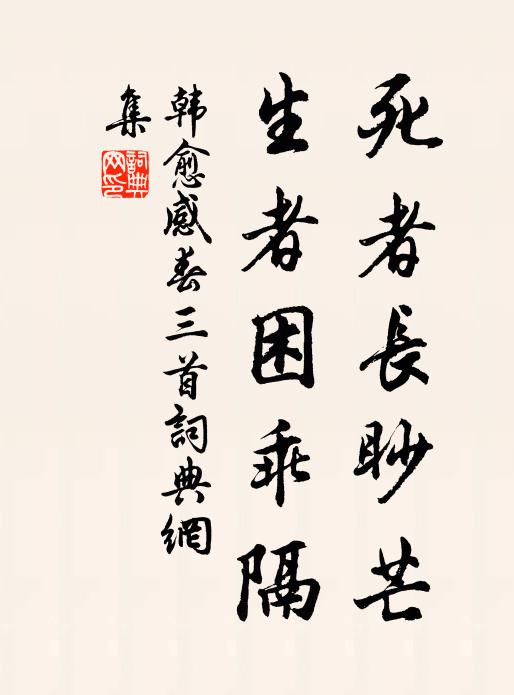 死者長眇芒
生者困乖隔
韩愈感春三首詞典網
集
詞典网印